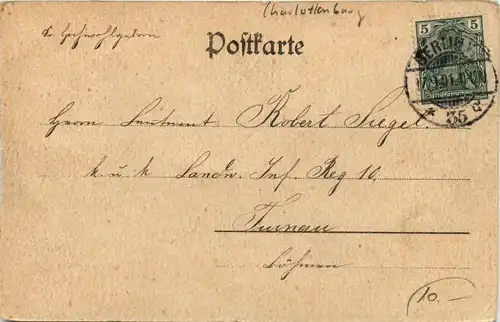 Charlottenburg
Postkarte
5 5
BERLIN
35
Herrn Leutnant Robert Siegel.
k. u. k Landw. Inf. Reg 10.
Turnau
Böhmen
10.-